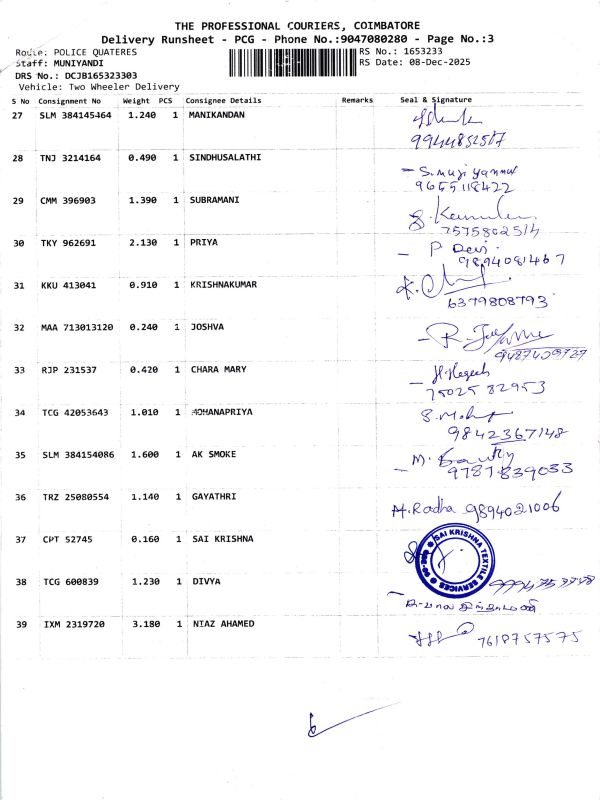 THE PROFESSIONAL COURIERS, COIMBATORE
Delivery Runsheet - PCG - Phone No.:9047080280 - Page No.:3
Route: POLICE QUATERES RS No.: 1653233
Staff: MUNIYANDI RS Date: 08-Dec-2025
DRS No.: DCJB165323303
Vehicle: Two Wheeler Delivery
S No Consignment No Weight PCS Consignee Details Remarks Seal & Signature
27 SLM 384145464 1.240 1 MANIKANDAN
28 TNJ 3214164 0.490 1 SINDHUSALATHI
9655118422
29 CMM 396903 1.390 1 SUBRAMANI
7575802514
30 TKY 962691 2.130 1 PRIYA P Devi
9894081467
31 KKU 413041 0.910 1 KRISHNAKUMAR
6379808793
32 MAA 713013120 0.240 1 JOSHVA
33 RJP 231537 0.420 1 CHARA MARY
7502582953
34 TCG 42053643 1.010 1 MOHANAPRIYA
9842367148
35 SLM 384154086 1.600 1 AK SMOKE
9787839033
36 TRZ 25080554 1.140 1 GAYATHRI
Radha 9894021006
37 CPT 52745 0.160 1 SAI KRISHNA
SAI KRISHNA TEXTILE SERVICES
38 TCG 600839 1.230 1 DIVYA
39 IXM 2319720 3.180 1 NIAZ AHAMED
7618757575